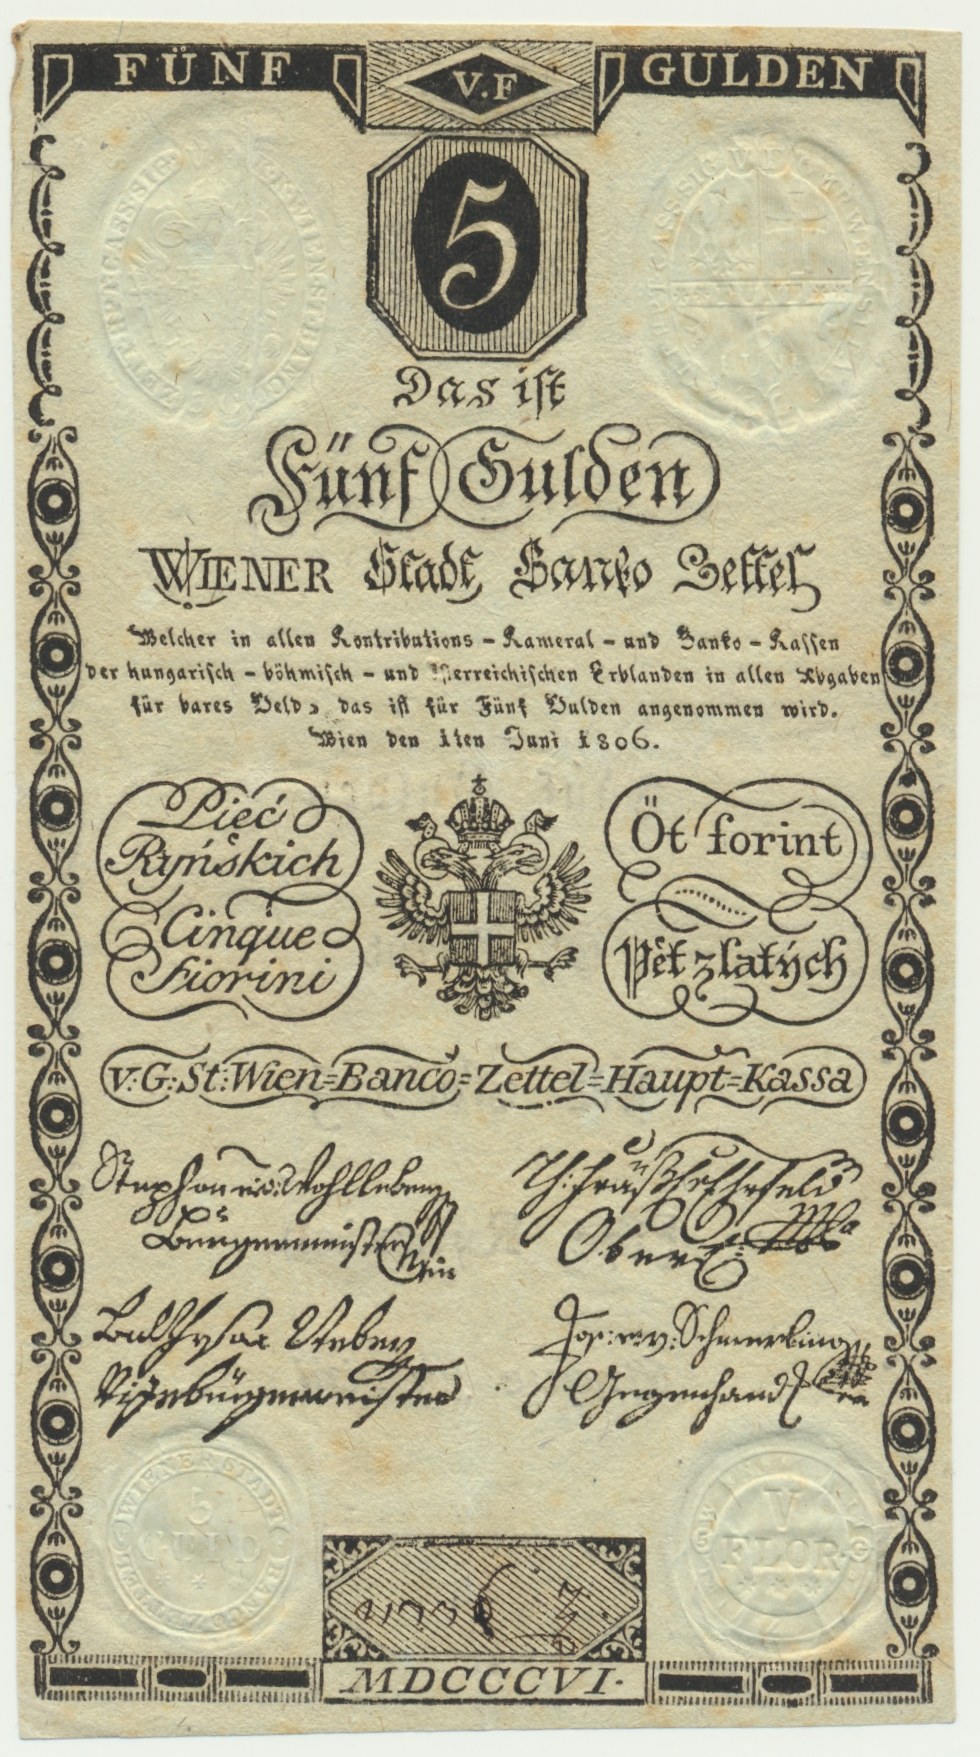 FÜNF
V.F
GULDEN
5
Das ist
Fünf Gulden
WIENER Stadt Banko Zettel
Welcher in allen Kontributions - Kameral - und Banko - Kassen
der hungarisch - böhmisch - und österreichischen Erblanden in allen Abgaben
für bares Geld, das ist für Fünf Gulden angenommen wird.
Wien den 1ten Juni 1806.
Pieć
Ryńskich
Cinque
Fiorini
Öt forint
Pět zlatých
V:G:St:Wien=Banco=Zettel=Haupt=Kassa
Stephan v: Wohlleben
Burgermeister
Ober
Vizebürgermeister
Jos: v: Schmerling
Gegenhandl
WIENER STADT BANCO ZETTEL
5
GULD
V
FLOR.
MDCCCVI.